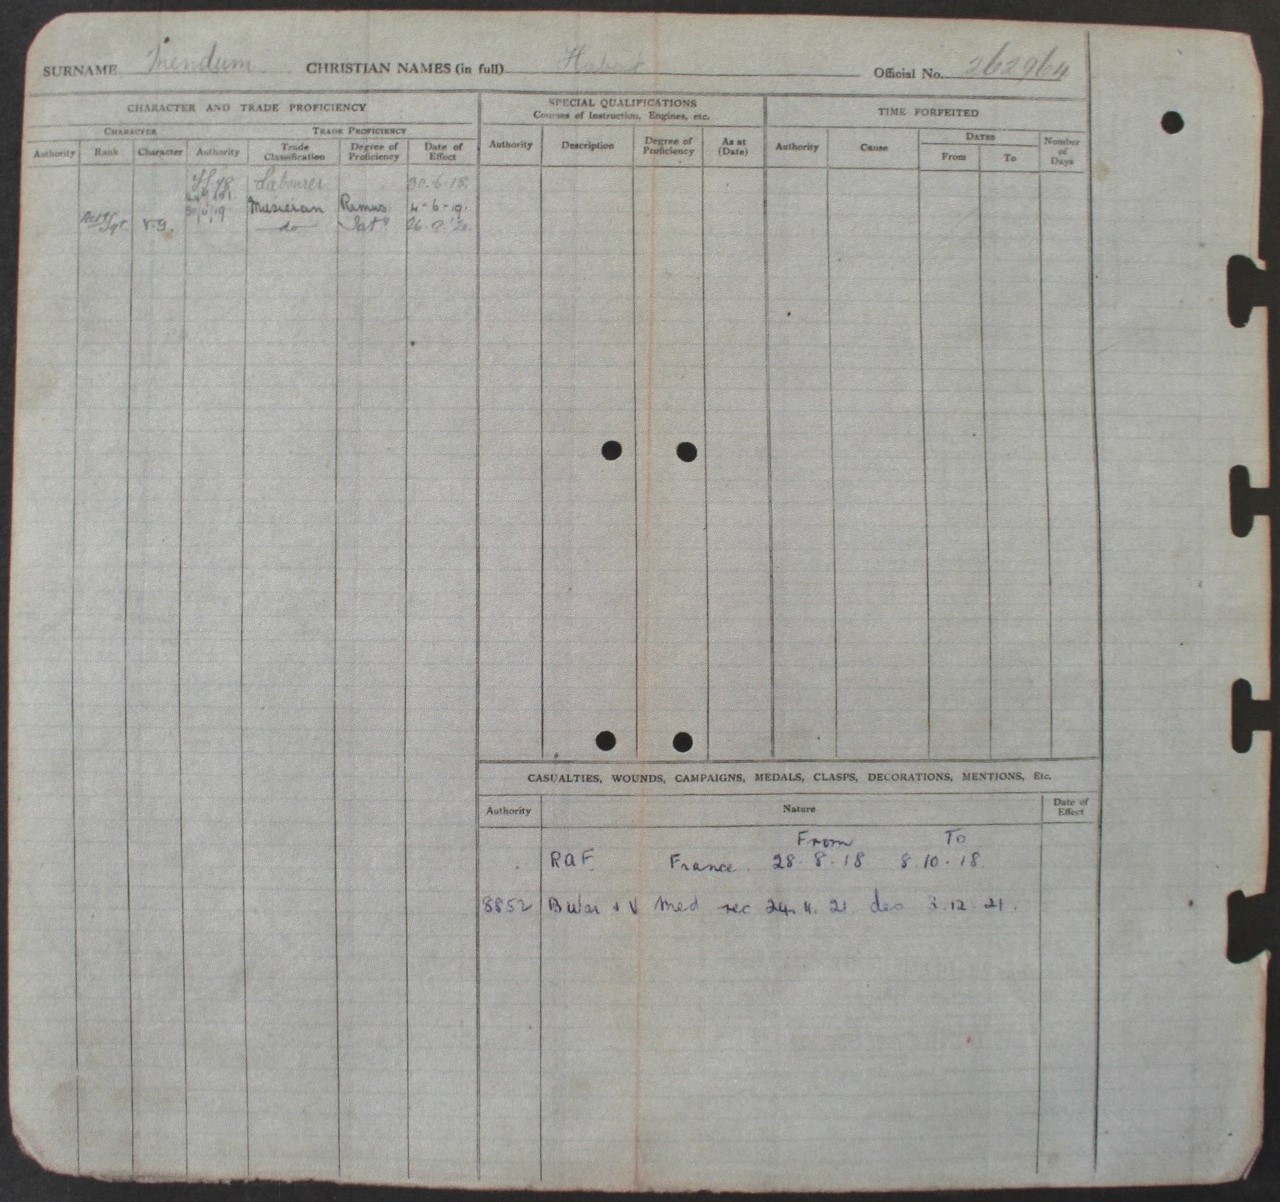 SURNAME CHRISTIAN NAMES (in full) Official No. 262964
CHARACTER AND TRADE PROFICIENCY
CHARACTER TRADE PROFICIENCY
Authority Rank Character Authority Trade Classification Degree of Proficiency Date of Effect
Labourer 30.6.18.
Musician Remus 4-6-19.
V.G. do Sat
SPECIAL QUALIFICATIONS
Courses of Instruction, Engines, etc.
Authority Description Degree of Proficiency As at (Date)
TIME FORFEITED
Authority Cause DATES Number of Days
From To
CASUALTIES, WOUNDS, CAMPAIGNS, MEDALS, CLASPS, DECORATIONS, MENTIONS, Etc.
Authority Nature Date of Effect
From To
RAF. France. 28.8.18 8.10.18.
8852 B War + V Med rec 24.11.21. des 3.12.21.